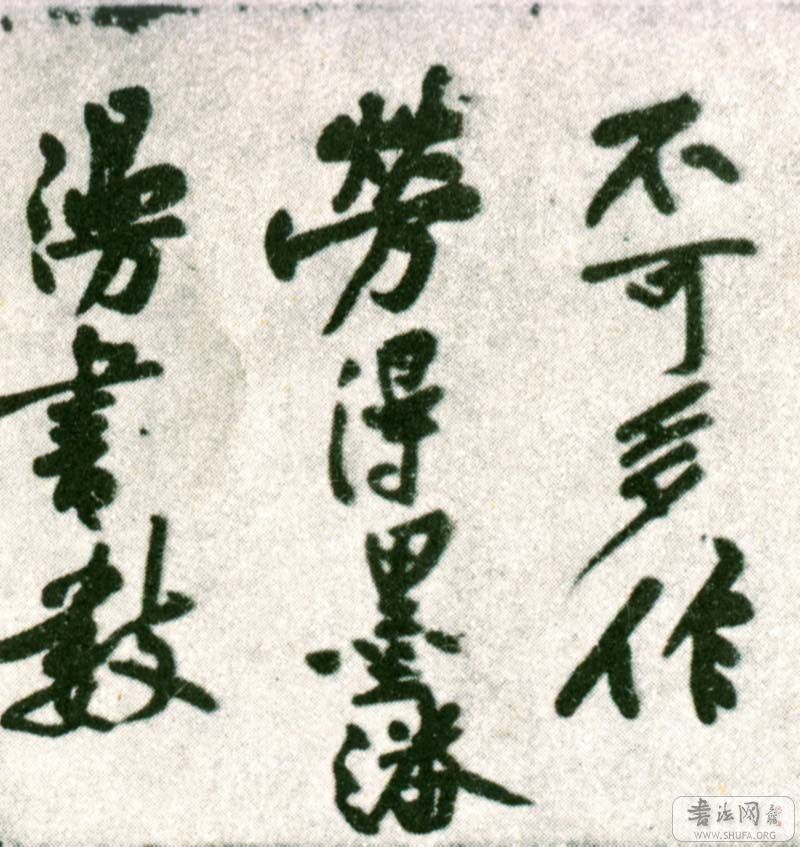 不可多作
勞得墨
漫書數
書法网
WWW.SHUFA.ORG